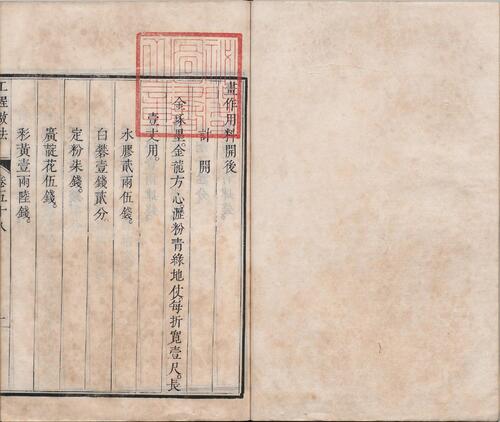 畫作用料開後
計開
金琢墨金龍方心瀝粉青綠地仗。每折寬壹尺。長
壹丈用。
水膠貳兩伍錢。
白礬壹錢貳分
定粉柒錢。
廣靛花伍錢。
彩黃壹兩陸錢。
工程做法
卷五十八
一